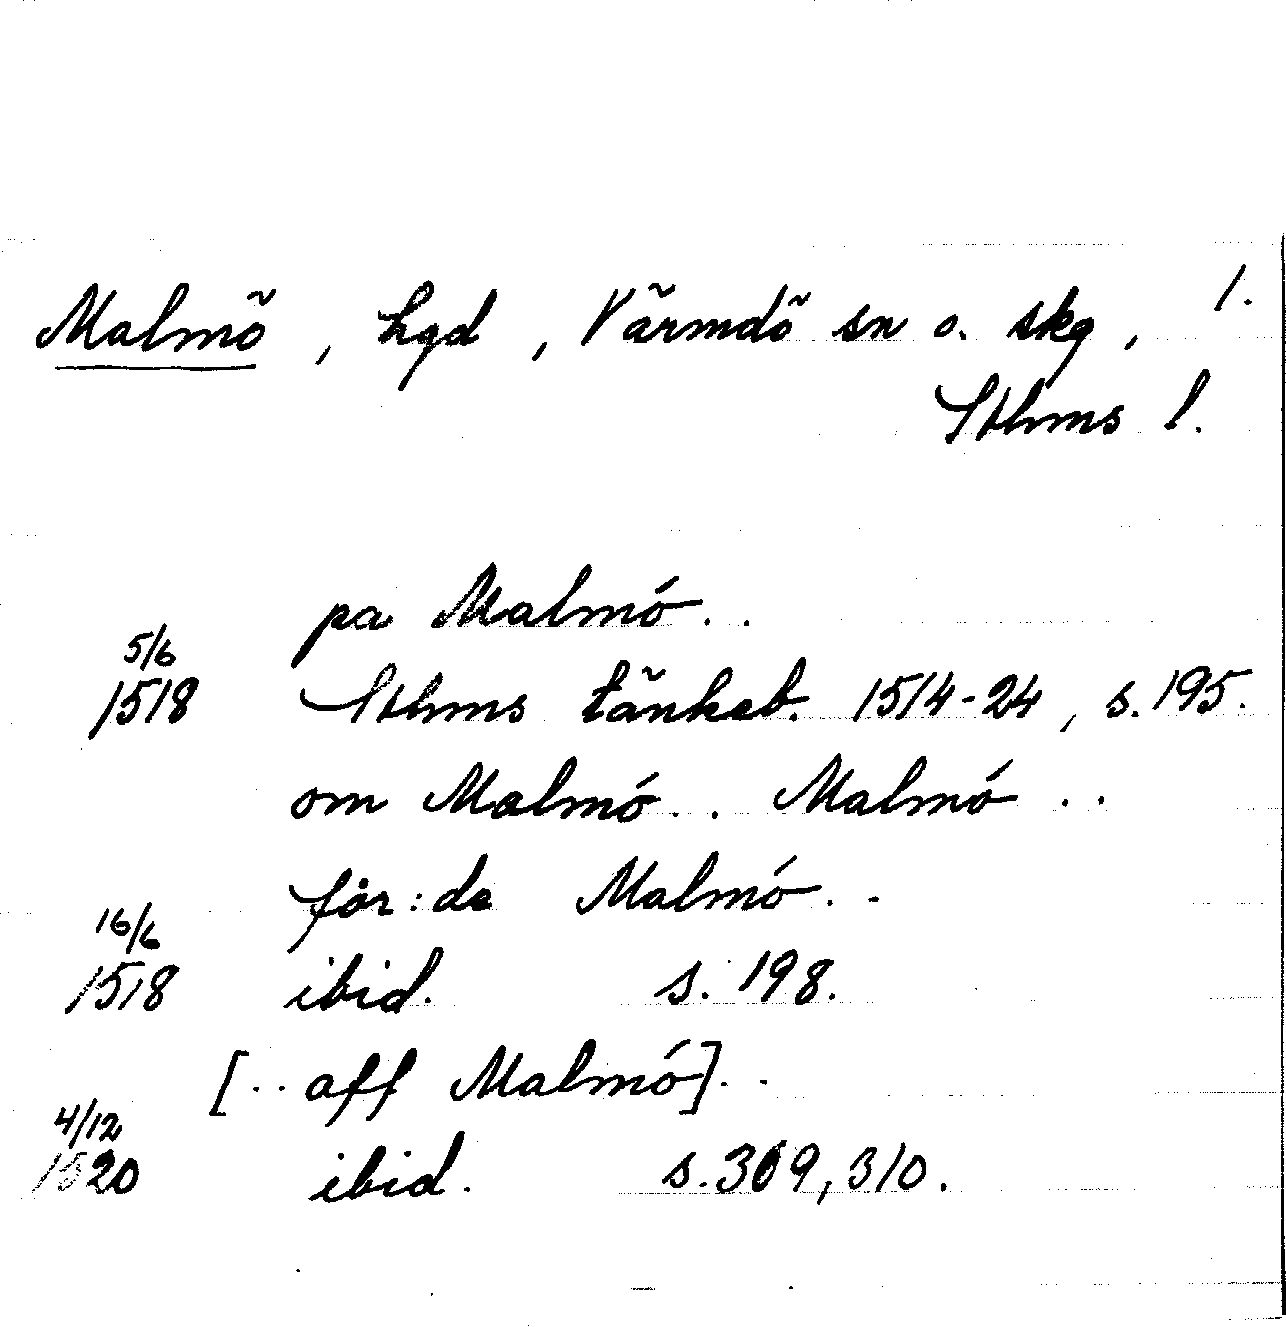 Malmö, hgd, Värmdö sn o. skg, 1.
Sthms l.
pa Malmó..
5/6
1518 Sthms tänkeb. 1514-24, s. 195.
om Malmó.. Malmó..
för:de Malmó..
16/6
1518 ibid. s. 198.
[.. aff Malmó]..
4/12
1520 ibid. s. 309, 310.